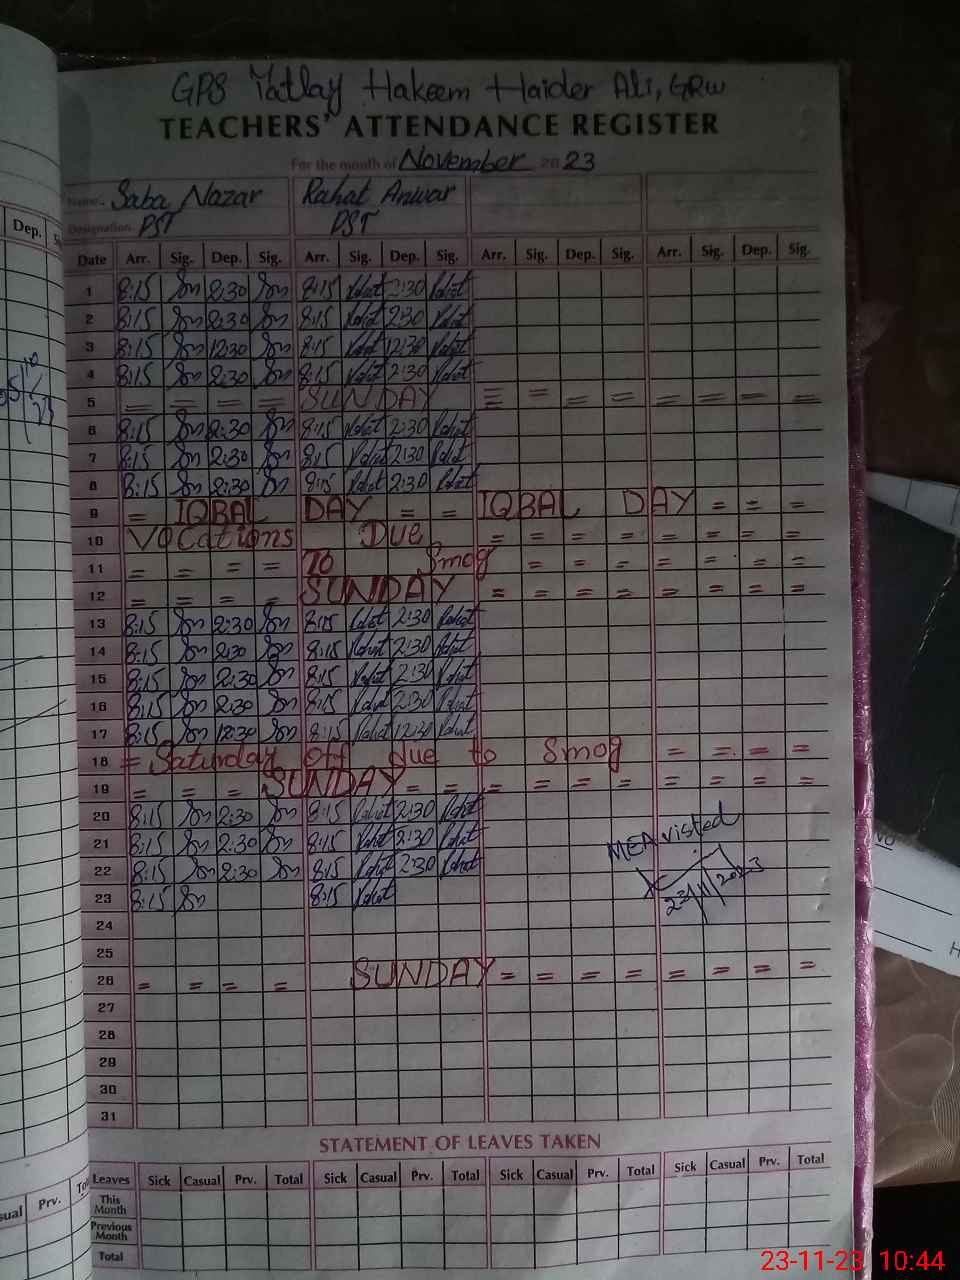 GPS Tatlay Hakeem Haider Ali, GRW
TEACHERS' ATTENDANCE REGISTER
For the month of November 2023
Name. Saba Nazar Rahat Anwar
Designation PST PST
Dep.
Date Arr. Sig. Dep. Sig. Arr. Sig. Dep. Sig. Arr. Sig. Dep. Sig. Arr. Sig. Dep. Sig.
1 8:15 2:30 8:15 Rahat 2:30 Rahat
2 8:15 2:30 8:15 Rahat 2:30 Rahat
3 8:15 12:30 8:15 Rahat 12:30 Rahat
4 8:15 2:30 8:15 Rahat 2:30 Rahat
5 = = = = SUNDAY = = = = = = = =
6 8:15 2:30 8:15 Rahat 2:30 Rahat
7 8:15 2:30 8:15 Rahat 2:30 Rahat
8 8:15 2:30 8:15 Rahat 2:30 Rahat
9 = IQBAL DAY = = IQBAL DAY = = =
10 Vocations Due = = = = = = = =
11 = = = = To Smog = = = = = = =
12 = = = = SUNDAY = = = = = = = =
13 8:15 2:30 8:15 Rahat 2:30 Rahat
14 8:15 2:30 8:15 Rahat 2:30 Rahat
15 8:15 2:30 8:15 Rahat 2:30 Rahat
16 8:15 2:30 8:15 Rahat 2:30 Rahat
17 8:15 12:30 8:15 Rahat 12:30 Rahat
18 = Saturday off due to Smog = = = =
19 = = = SUNDAY = = = = = = = = = =
20 8:15 2:30 8:15 Rahat 2:30 Rahat
21 8:15 2:30 8:15 Rahat 2:30 Rahat
22 8:15 2:30 8:15 Rahat 2:30 Rahat
MEA visted
23/11/2023
23 8:15 8:15 Rahat
24
25
26 = = = = SUNDAY = = = = = = = =
27
28
29
30
31
STATEMENT OF LEAVES TAKEN
Leaves Sick Casual Prv. Total Sick Casual Prv. Total Sick Casual Prv. Total Sick Casual Prv. Total
This Month
Previous Month
Total
Prv.
23-11-23, 10:44